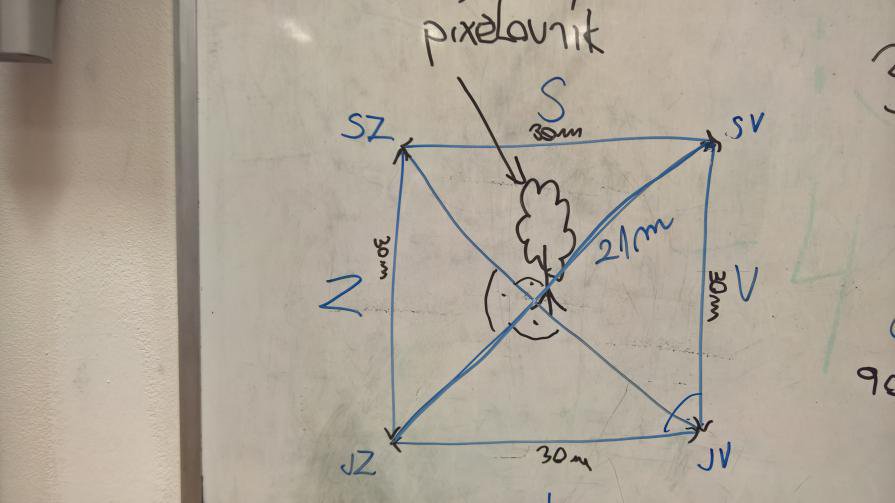 pixelovník
S
SZ
30m
SV
21m
30m
Z
30m
V
90
JZ
30m
JV